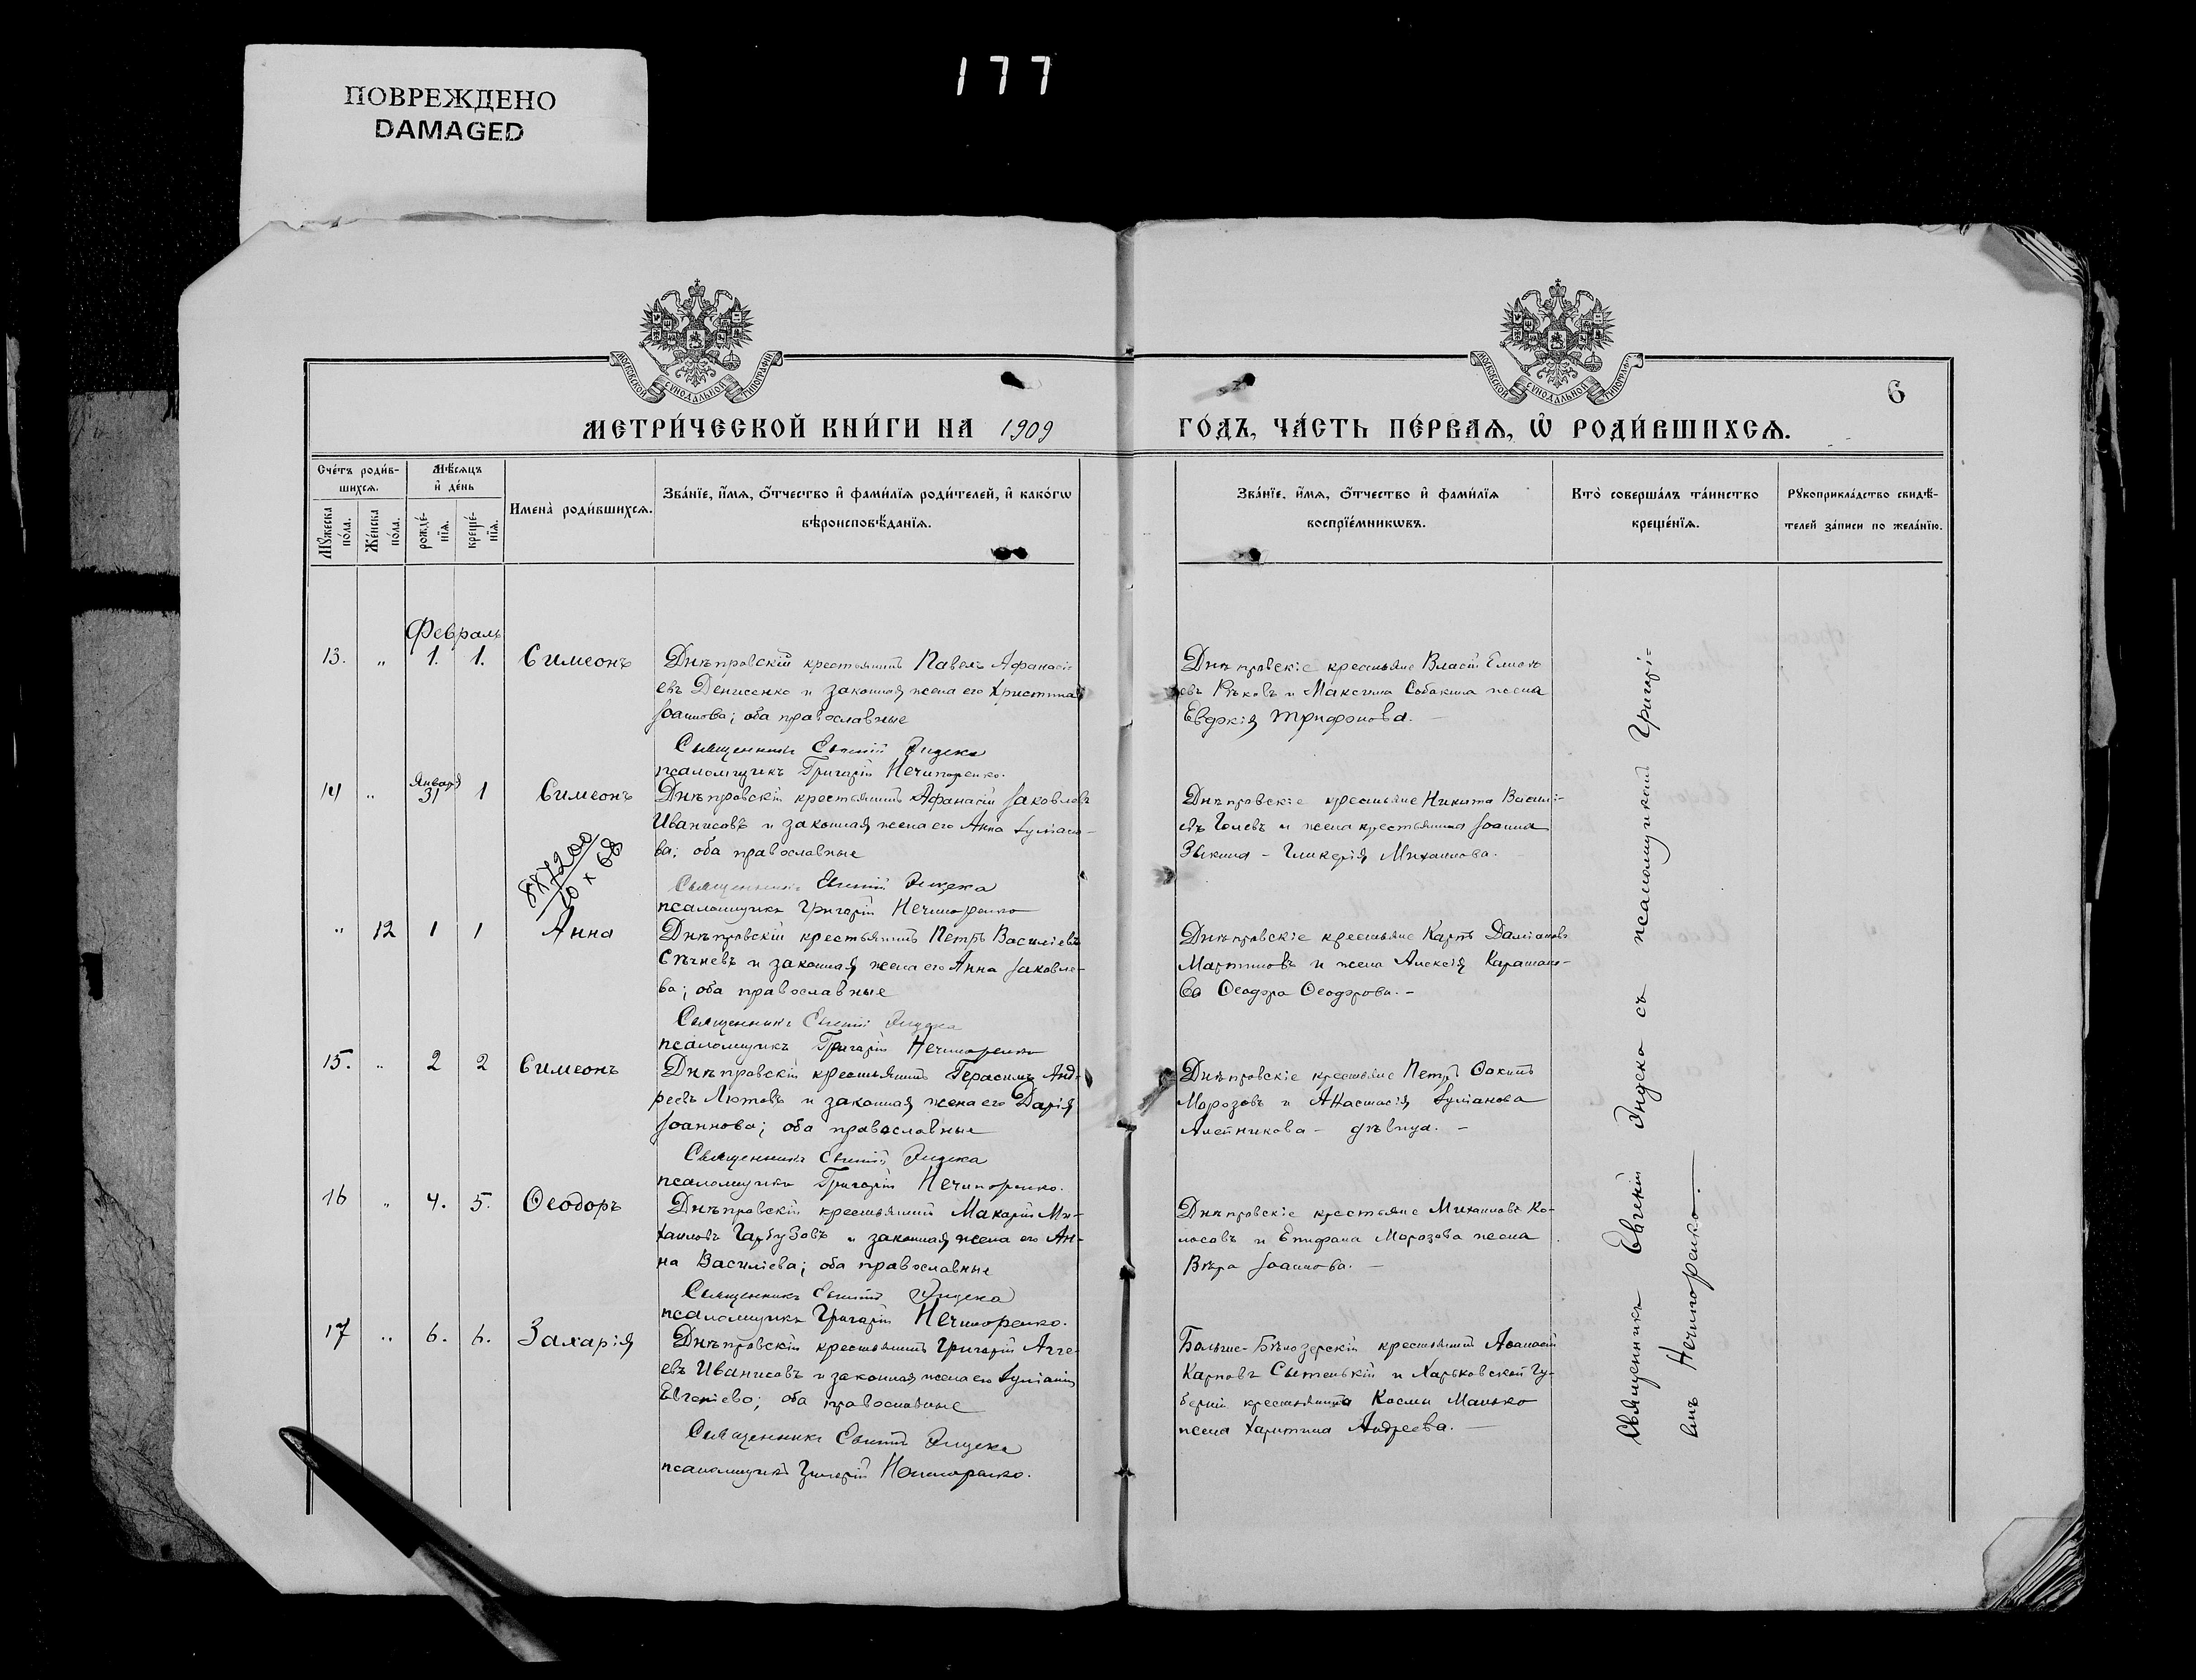 ПОВРЕЖДЕНО
DAMAGED
177
МОСКОВСКОЙ СѴНОДАЛЬНОЙ ТИПОГРАФІИ
МОСКОВСКОЙ СѴНОДАЛЬНОЙ ТИПОГРАФІИ
6
МЕТРИ́ЧЕСКОЙ КНИ́ГИ НА 1909
ГО́ДЪ, ЧА́СТЬ ПЕ́РВАѦ, Ѡ҆ РОДИ́ВШИХСѦ.
Сче́тъ роди́в-
шихсѧ.
Мѣ́сѧцъ
и҆ де́нь
Мꙋ́жеска
по́ла.
Же́нска
по́ла.
рожде́-
нїѧ.
креще́-
нїѧ.
Имена̀ роди́вшихсѧ.
Зва́нїе, и҆́мѧ, ѻ҆́тчество и҆ фами́лїѧ роди́телей, и҆ како́гѡ
вѣроисповѣ́данїѧ.
Зва́нїе, и҆́мѧ, ѻ҆́тчество и҆ фами́лїѧ
воспрїе́мникѡвъ.
Кто̀ соверша́лъ та́инство
креще́нїѧ.
Рꙋкоприкла́дство свидѣ́-
телей за́писи по жела́нїю.
Февраль
13. " 1. 1. Симеонъ
Днѣпровскій крестьянинъ Павелъ Афанасі-
евъ Денисенко и законная жена его Христина
Іоаннова; оба православные
Священникъ Евгеній
псаломщикъ Григорій Нечипоренко.
Днѣпровскіе крестьяне Власій
евъ и Максима Собакина жена
Евдокія Трифонова. —
14 " Января 31 1 Симеонъ
Днѣпровскій крестьянинъ Афанасій Іаковлевъ
Иванисовъ и законная жена его Анна Іуліано-
ва; оба православные
Священникъ Евгеній
псаломщикъ Григорій Нечипоренко
Днѣпровскіе крестьяне Никита Васильі-
евъ и жена крестьянина Іоанна
Зыкина - Гликерія Михаилова. -
" 12 1 1 Анна
Днѣпровскій крестьянинъ Петръ Василіевъ
и законная жена его Анна Іаковле-
ва; оба православные
Священникъ Евгеній
псаломщикъ Григорій Нечипоренко
Днѣпровскіе крестьяне Карпъ Даміановъ
Мартиновъ и жена Алексія
Ѳеодора Ѳеодорова. -
15. " 2 2 Симеонъ
Днѣпровскій крестьянинъ Герасимъ Анд-
реевъ Лютовъ и законная жена его Дарія
Іоаннова; оба православные
Священникъ Евгеній
псаломщикъ Григорій Нечипоренко.
Днѣпровскіе крестьяне Петръ
Морозовъ и Анастасія Іуліанова
Алейникова - дѣвица. -
16 " 4. 5. Ѳеодоръ
Днѣпровскій крестьянинъ Макарій Ми-
хаиловъ Гарбузовъ и законная жена его Ан-
на Василіева; оба православные
Священникъ Евгеній
псаломщикъ Григорій Нечипоренко.
Днѣпровскіе крестьяне Михаилъ Ко-
лосовъ и Епифана Морозова жена
Вѣра Іоаннова. —
17 " 6. 6. Захарія
Днѣпровскій крестьянинъ Григорій Агге-
евъ Иванисовъ и законная жена его Іуліанія
Евгеніева; оба православные
Священникъ Евгеній
псаломщикъ Григорій Нечипоренко.
Больше-Бѣлозерскій крестьянинъ Аѳанасій
Карповъ и Харьковской гу-
берніи крестьянина Космы Манько
жена Харитина Андреева. —
Священникъ Евгеній съ псаломщикомъ Григорі-
емъ Нечипоренко. —